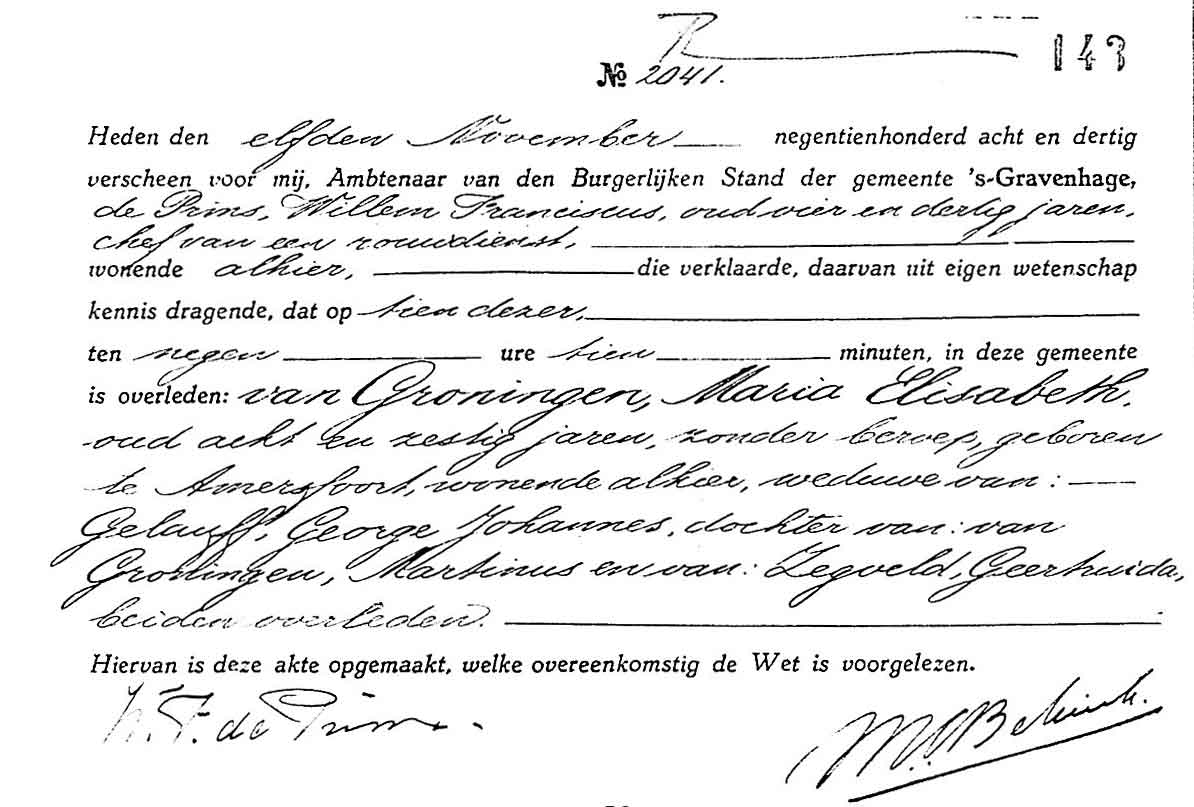 143
№ 2041.
Heden den elfden November negentienhonderd acht en dertig
verscheen voor mij, Ambtenaar van den Burgerlijken Stand der gemeente 's-Gravenhage,
de Prins, Willem Franciscus, oud vier en dertig jaren,
chef van een rouwdienst,
wonende alhier, die verklaarde, daarvan uit eigen wetenschap
kennis dragende, dat op tien dezer,
ten negen ure tien minuten, in deze gemeente
is overleden: van Groningen, Maria Elisabeth,
oud acht en zestig jaren, zonder beroep, geboren
te Amersfoort, wonende alhier, weduwe van:
Gelauff, George Johannes, dochter van: van
Groningen, Martinus en van: Zegveld, Geertruida,
beiden overleden.
Hiervan is deze akte opgemaakt, welke overeenkomstig de Wet is voorgelezen.
W. F. de Prins.